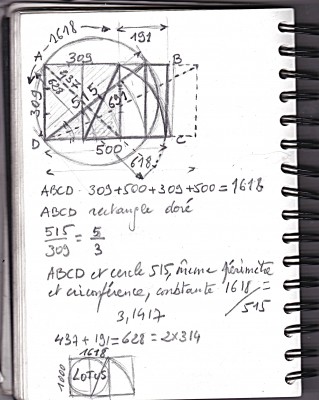 1618
191
A
309
B
309
437
618
5
5
691
D
500
C
618
ABCD. 309+500+309+500=1618
ABCD rectangle doré
515/309 = 5/3
ABCD et cercle 515, même périmètre
et circonférence, constante 1618/515 =
3,1417
437+191=628=2x314
1618
1000
LOTUS